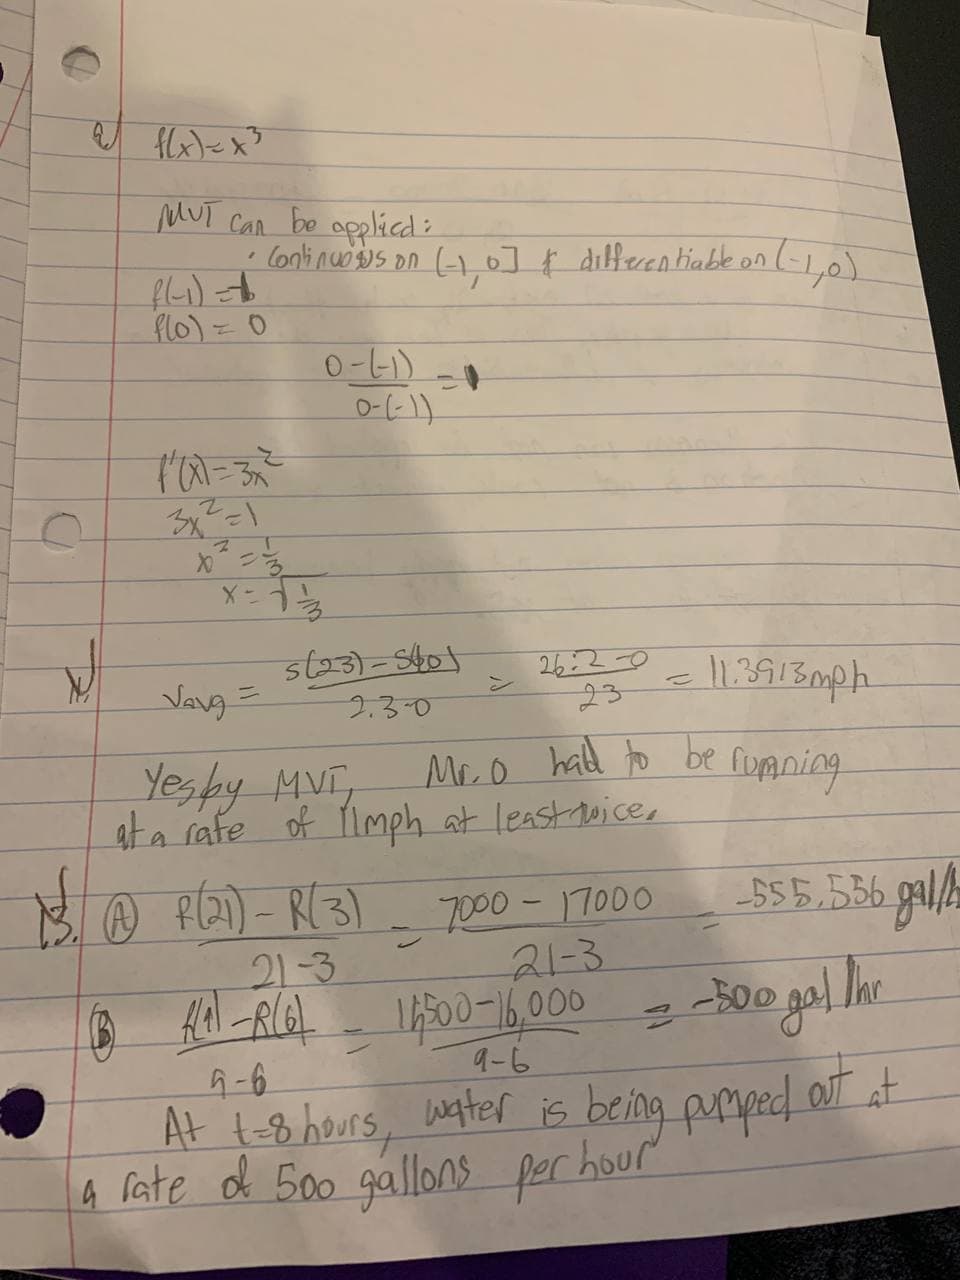 f(x)=x³
MVT can be applied:
· Continuous on [-1,0] & differentiable on (-1,0)
f(-1) =
f(0) = 0
0-(-1)
0-(-1)
=
f'(x)=3x²
3x²=1
x² = 1/3
x = √1/3
Vavg = s(23)-s(0) / 2.3-0 = 26.2-0 / 23 = 11.3913mph
Yes by MVT, Mr. O had to be running
at a rate of 11mph at least twice.
13. A R(21) - R(3) / 21-3 = 7000 - 17000 / 21-3 = -555.556 gal/h
B - R(6) / 9-6 = 500-16,000 / 9-6 = -500 gal/hr
At t=8 hours, water is being pumped out at
a rate of 500 gallons per hour